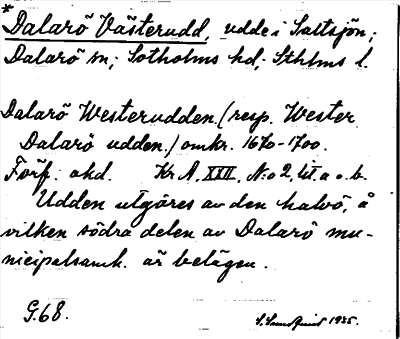 * Dalarö Västerudd, udde i Saltsjön;
Dalarö sn; Sotholms hd; Sthlms l.
Dalarö Westerudden (resp. Wester
Dalarö udden) omkr. 1670-1700.
Förf. okd. Kr A, XXII, N:o 2, lit a o. b.
Udden utgöres av den halvö, å
vilken södra delen av Dalarö mu-
nicipalsamh. är belägen.
G.68.
1935.